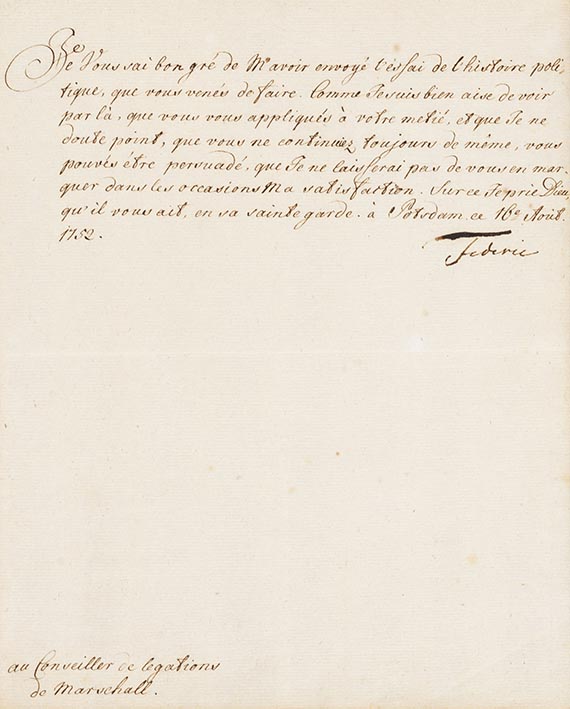 Je Vous sai bon gré de M'avoir envoyé l'essai de l'histoire poli-
tique, que vous venés de faire. Comme Je suis bien aise de voir
par là, que vous vous appliqués à votre metié, et que Je ne
doute point, que vous ne continuiez toujours de même, vous
pouvés être persuadé, que Je ne laisserai pas de vous en mar-
quer dans les occasions Ma satisfaction. Sur ce Je prie Dieu,
qu'il vous ait, en sa sainte garde. à Potsdam ce 16e Aout.
1752.
Federic
au Conseiller de legations
de Marschall.